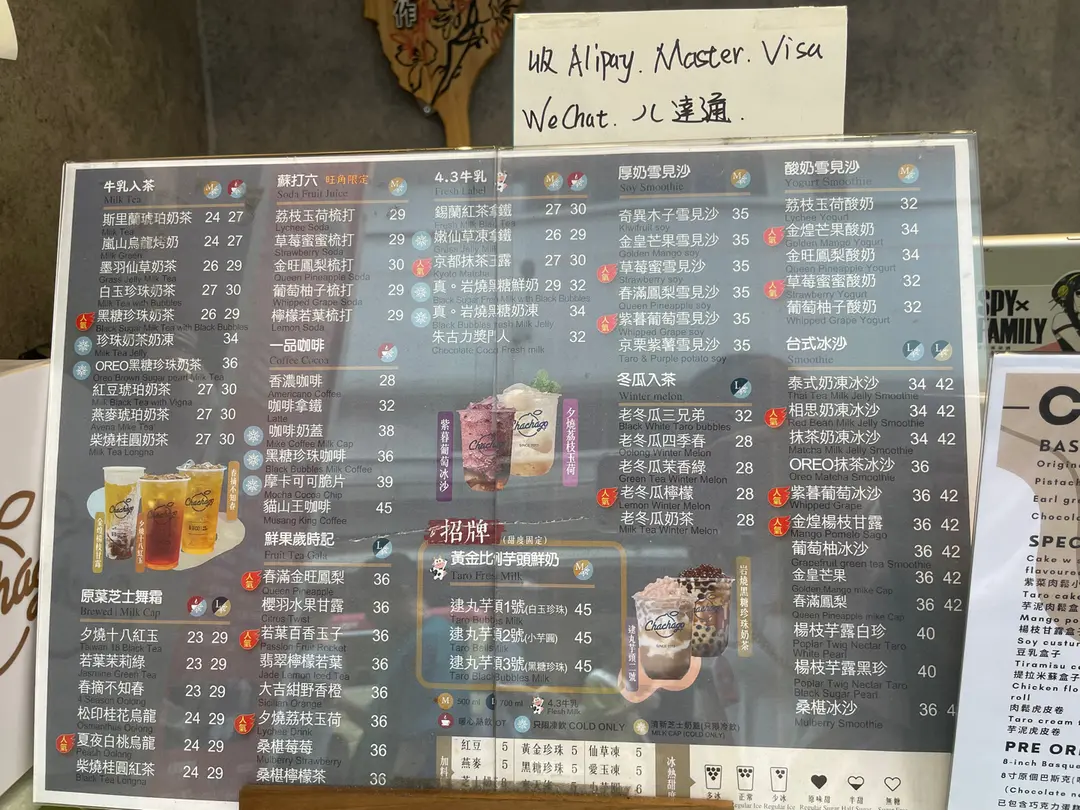 作
收 Alipay. Master. Visa
WeChat. 八達通.
牛乳入茶
Milk Tea
斯里蘭琥珀奶茶 24 27
嵐山烏龍烤奶 24 27
Milk Green
墨羽仙草奶茶 26 29
Grass Jelly Milk Tea
白玉珍珠奶茶 27 30
Milk Tea with Bubbles
人氣 黑糖珍珠奶茶 26 29
Black Sugar Milk Tea with Black Bubbles
珍珠奶茶奶凍 34
Milk Tea Jelly
OREO黑糖珍珠奶茶 36
Oreo Brown Sugar pearl Milk Tea
紅豆琥珀奶茶 27 30
Milk Black Tea with Vigna
燕麥琥珀奶茶 27 30
Avena Milk Tea
柴燒桂圓奶茶 27 30
Milk Tea Longna
春摘不知春
夕燒十八紅玉
金煌楊枝甘露
Chachago
原葉芝士舞霜
Brewed | Milk Cap
夕燒十八紅玉 23 29
Taiwan 18 Black Tea
若葉茉莉綠 23 29
Jasmine Green Tea
春摘不知春 23 29
4 Season Oolong
松印桂花烏龍 24 29
Osmanthus Oolong
人氣 夏夜白桃烏龍 24 29
Peach Oolong
柴燒桂圓紅茶 24 29
Black Tea Longna
蘇打六 旺角限定
Soda Fruit Juice
M
荔枝玉荷梳打 29
Lychee Soda
草莓蜜蜜梳打 29
Strawberry Soda
金旺鳳梨梳打 30
Queen Pineapple Soda
葡萄柚子梳打 29
Whipped Grape Soda
檸檬若葉梳打 29
Lemon Soda
一品咖啡
Coffee Cocoa
香濃咖啡 28
Americano Coffee
咖啡拿鐵 32
Latte
咖啡奶蓋 38
Mike Coffee Milk Cap
黑糖珍珠咖啡 36
Black Bubbles Milk Coffee
摩卡可可脆片 39
Mocha Cocoa Chip
貓山王咖啡 45
Musang King Coffee
鮮果歲時記
Fruit Tea Gola
L
人氣 春滿金旺鳳梨 36
Queen Pineapple
櫻羽水果甘露 36
Citrus Twist
人氣 若葉百香玉子 36
Passion Fruit Rocket
翡翠檸檬若葉 36
Jade Lemon Iced Tea
大吉紺野香橙 36
人氣 夕燒荔枝玉荷 36
Lychee Drink
桑椹莓莓 36
Mulberry Strawberry
桑椹檸檬茶 36
4.3牛乳
Fresh Label
錫蘭紅茶拿鐵 27 30
嫩仙草凍拿鐵 26 29
人氣 京都抹茶玉露 27 30
Kyoto Matcha
真。岩燒黑糖鮮奶 29 32
Black Sugar Fresh Milk with Black Bubbles
真。岩燒黑糖奶凍 34
Black Bubbles fresh Milk Jelly
朱古力獎門人 32
Chocolate Coco Fresh milk
紫暮葡萄冰沙
夕燒荔枝玉荷
Chachago
招牌 (甜度固定)
黃金比例芋頭鮮奶
Taro Fresh Milk
M
逮丸芋頭1號(白玉珍珠) 45
Taro Bubbls Milk
逮丸芋頭2號(小芋圓) 45
Taro Balls Milk
逮丸芋頭3號(黑糖珍珠) 45
Taro Black Bubbles Milk
M 500 ml L 700 ml 4.3牛乳
Flesh Milk
只限凍飲 COLD ONLY
清新芝士奶蓋(只限冷飲)
MILK CAP (COLD ONLY)
加料
紅豆 5 黃金珍珠 5 仙草凍 5
燕麥 5 黑糖珍珠 5 愛玉凍 5
冰熱甜度
多冰 正常 少冰 原味甜 半甜 無糖
厚奶雪見沙
Soy Smoothie
M
奇異木子雪見沙 35
Kiwifruit soy
金皇芒果雪見沙 35
Golden Mango soy
人氣 草莓蜜雪見沙 35
Strawberry soy
春滿鳳梨雪見沙 35
Queen Pineapple soy
人氣 紫暮葡萄雪見沙 35
Whipped Grape soy
京栗紫薯雪見沙 35
Taro & Purple potato soy
冬瓜入茶
Winter melon
L
老冬瓜三兄弟 32
Black White Taro bubbles
老冬瓜四季春 28
Oolong Winter Melon
老冬瓜茉香綠 28
Green Tea Winter Melon
人氣 老冬瓜檸檬 28
Lemon Winter Melon
老冬瓜奶茶 28
Milk Tea Winter Melon
岩燒黑糖珍珠奶茶
逮丸芋頭二號
Chachago
酸奶雪見沙
Yogurt Smoothie
M
荔枝玉荷酸奶 32
Lychee Yogurt
人氣 金煌芒果酸奶 34
Golden Mango Yogurt
金旺鳳梨酸奶 34
Queen Pineapple Yogurt
人氣 草莓蜜蜜酸奶 32
Strawberry Yogurt
葡萄柚子酸奶 32
Whipped Grape Yogurt
台式冰沙
Smoothie
L L
泰式奶凍冰沙 34 42
Thai Tea Milk Jelly Smoothie
人氣 相思奶凍冰沙 34 42
Red Bean Milk Jelly Smoothie
抹茶奶凍冰沙 34 42
Matcha Milk Jelly Smoothie
OREO抹茶冰沙 36
Oreo Matcha Smoothie
人氣 紫暮葡萄冰沙 36 42
Whipped Grape
人氣 金煌楊枝甘露 36 42
Mango Pomelo Sago
葡萄柚冰沙 36 42
Grapefruit green tea Smoothie
金皇芒果 36 42
Golden Mango mike Cap
春滿鳳梨 36 42
Queen Pineapple mike Cap
楊枝芋露白珍 40
Poplar Twig Nectar Taro
White Pearl
楊枝芋露黑珍 40
Poplar Twig Nectar Taro
Black Sugar Pearl
桑椹冰沙 36 4
Mulberry Smoothie
SPY×
FAMILY
C
BAS
Origin
Pistach
Earl gr
Chocol
SPEC
Cake w
flavoure
紫菜肉鬆小
Taro cake
芋泥肉鬆蛋
Mango po
楊枝甘露盒
Soy custur
豆乳盒子
Tiramisu c
提拉米蘇盒子
Chicken flo
roll
肉鬆虎皮卷
Taro cream
芋泥虎皮卷
PRE OR
8-inch Basque
8寸原個巴斯克
(Chocolate n
已包含巧克力蛋